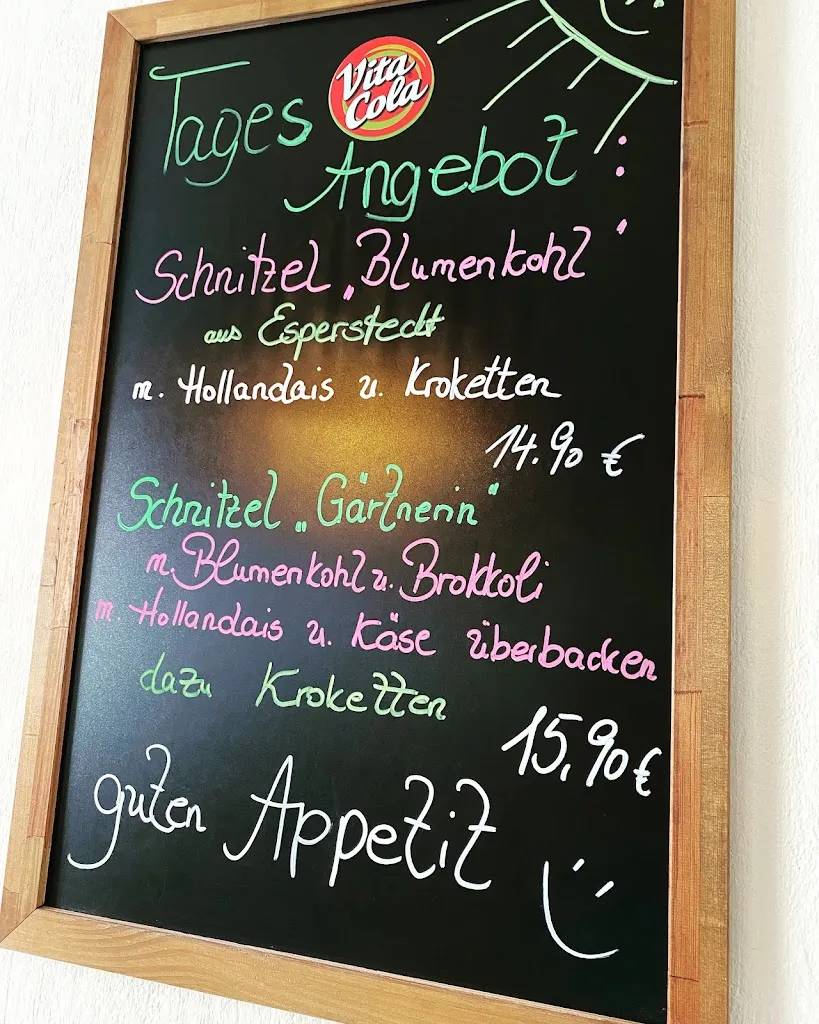 Tages
Vita
Cola
Angebot :
Schnitzel „Blumenkohl"
aus Esperstedt
m. Hollandais u. Kroketten
14.90 €
Schnitzel „Gärtnerin"
m. Blumenkohl u. Brokkoli
m. Hollandais u. Käse überbacken
dazu Kroketten
15,90 €
guten Appetit